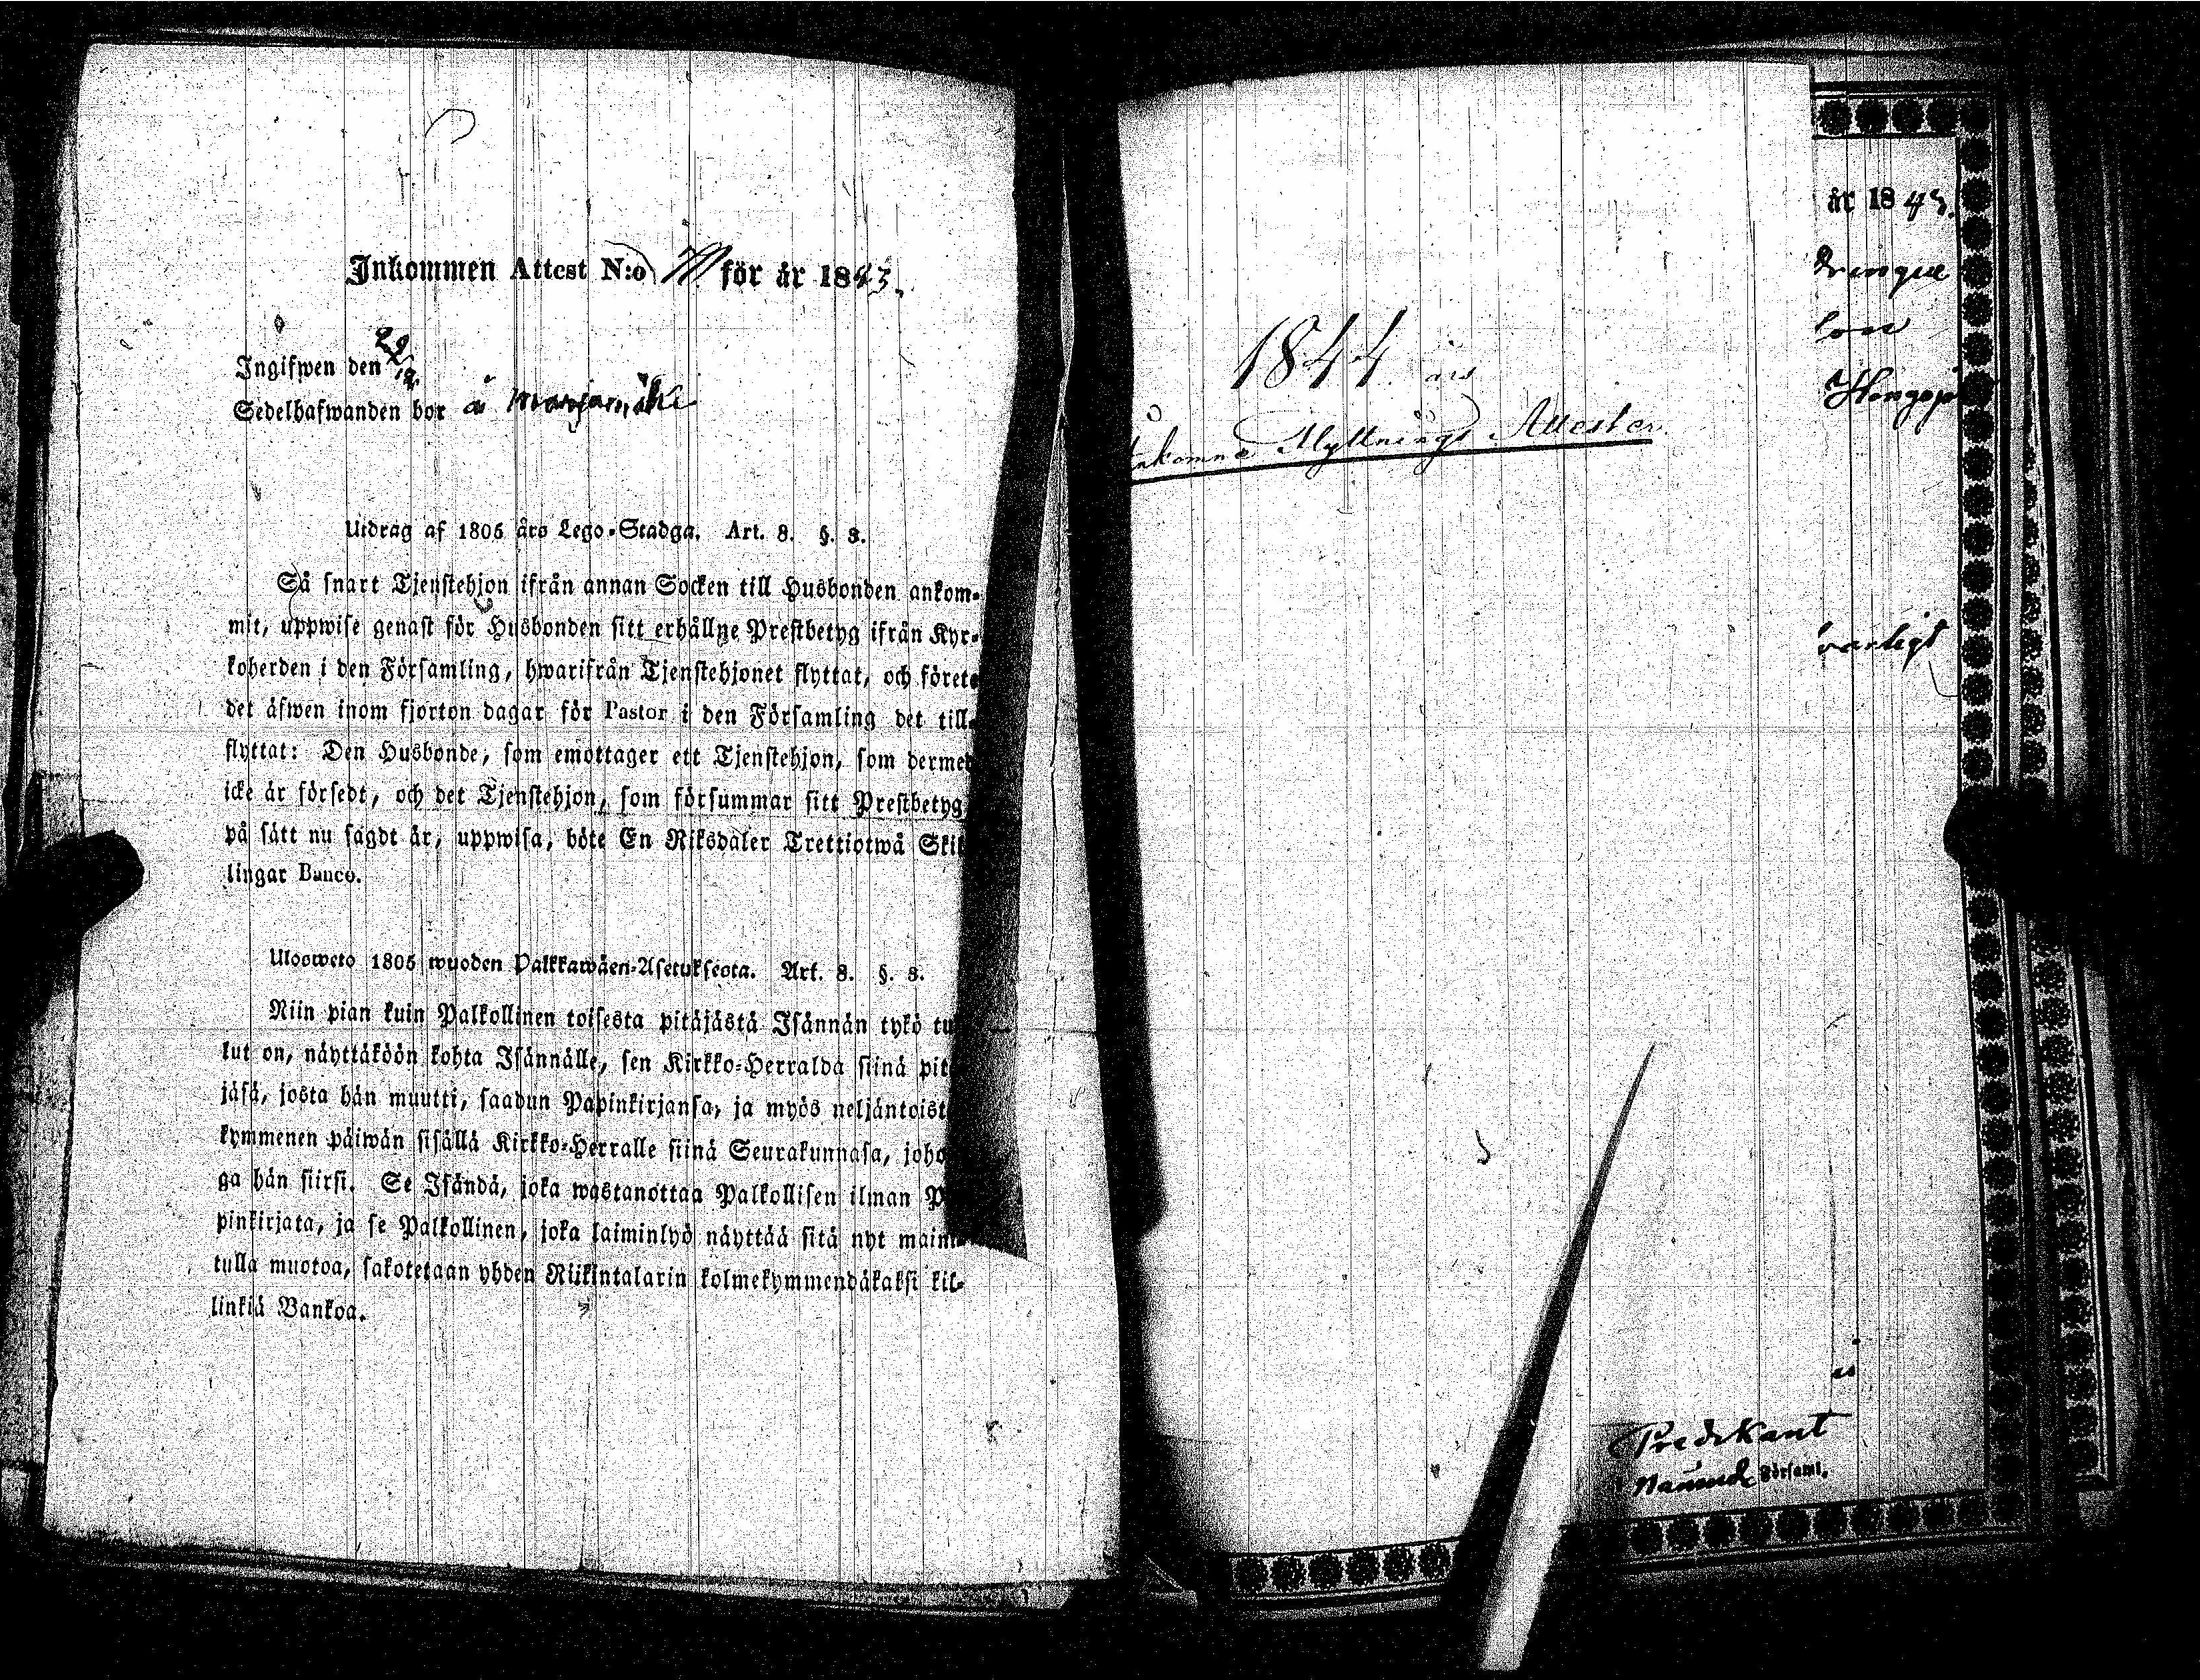 Inkommen Attest N:o för år 1843.
Ingifwen den 29/12
Sedelhafwanden bor å Marjamäki
Utdrag af 1805 års Lego-Stadga. Art. 8. §. 3.
Så snart Tjenstehjon ifrån annan Socken till Husbonden ankom-
mit, uppwise genast för Husbonden sitt erhållne Prestbetyg ifrån Kyr-
koherden i den Församling, hwarifrån Tjenstehjonet flyttat, och förete
det äfwen inom fjorton dagar för Pastor i den Församling det till-
flyttat: Den Husbonde, som emottager ett Tjenstehjon, som dermed
icke är försedt, och det Tjenstehjon, som försummar sitt Prestbetyg,
på sätt nu sagdt är, uppwisa, böte En Riksdaler Trettiotwå Skil
lingar Banco.
Ulosweto 1805 wuoden Palkkawäen-Asetuksesta. Art. 8. §. 3.
Niin pian kuin Palkollinen toisesta pitäjästä Isännän tykö tu
lut on, näyttäköön kohta Isännälle, sen Kirkko-Herralda siinä pit
jäsä, josta hän muutti, saadun Papinkirjansa, ja myös neljäntoist
kymmenen päiwän sisällä Kirkko-Herralle siinä Seurakunnasa, joho
ga hän siirsi. Se Isändä, joka wastanottaa Palkollisen ilman P
pinkirjata, ja se Palkollinen, joka laiminlyö näyttää sitä nyt maini
tulla muotoa, sakotetaan yhden Riikintalarin kolmekymmendäkaksi kil-
linkiä Bankoa.
1844 års
Inkomne Flyttnings Attester
år 1843.
drenque
son
varligt
Predikant
Församl.